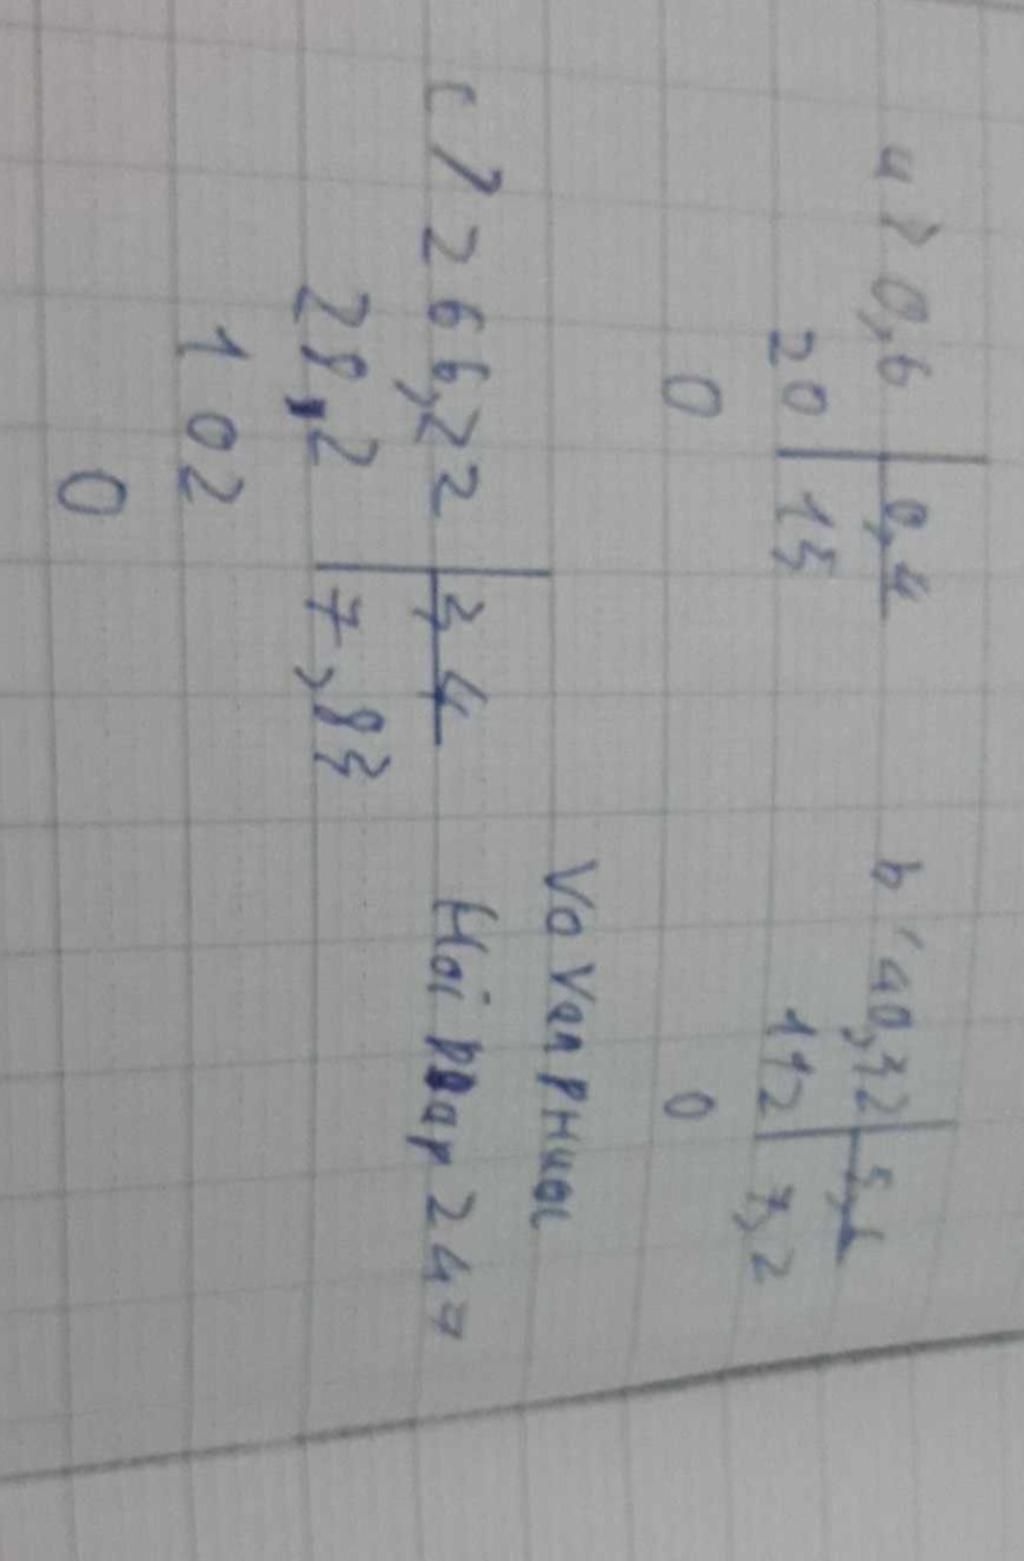 a) 0,6 | 0,4
20 | 15
0
b) 40,32 | 5,6
112 | 7,2
0
Vo Van PHuoc
c) 266,22 | 34
28,2 | 7,83
1 02
0
Hoi Dap 247